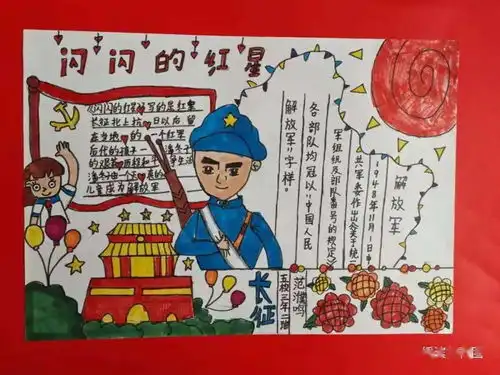 闪闪的红星
《闪闪的红星》写的是红军
长征北上抗日以后留
在当地的一个红军
后代的孩子
潘冬子
儿童成为解放军
解放军
1948年11月1日中
共军委作出《关于统一
军组织及部队番号的规定》
各部队均冠以“中国人民
解放军”字样。
长征
五校三年二班
范濮鸣